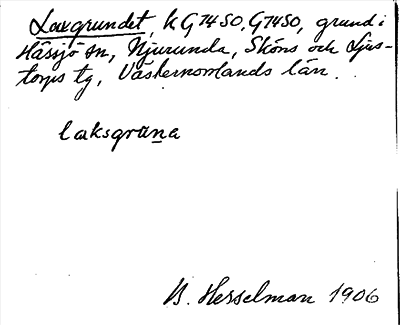 Laxgrundet, k G74SO, G74SO, grund i
Hässjö sn, Njurunda, Sköns och Ljus-
torps tg, Västernorrlands län.
laksgruna
B. Hesselman 1906